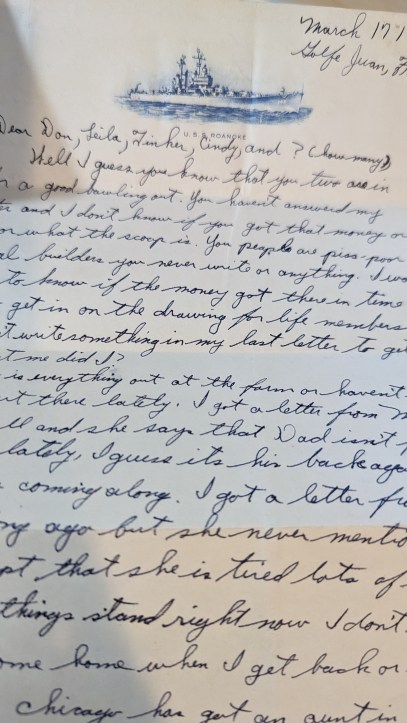 March 17
Golfe Juan, F
U.S.S. ROANOKE
Dear Don, Leila, Tinker, Cindy, and ? (how many)
Well I guess you know that you two are in
for a good bawling out. You haven't answerd my
letter and I don't know if you got that money or
or what the scoop is. You people are piss-poor
al builders you never write or anything. I wo
to know if the money got there in time
get in on the drawing for life members
t write something in my last letter to get
t me did I?
is everything out at the farm or haven't
ut there lately. I got a letter from M
ll and she says that Dad isn't
lately, I guess its his back aga
coming along. I got a letter fr
ng ago but she never mentio
pt that she is tired lots of
things stand right now I don't
ome home when I get back or
Chicago has got an aunt in